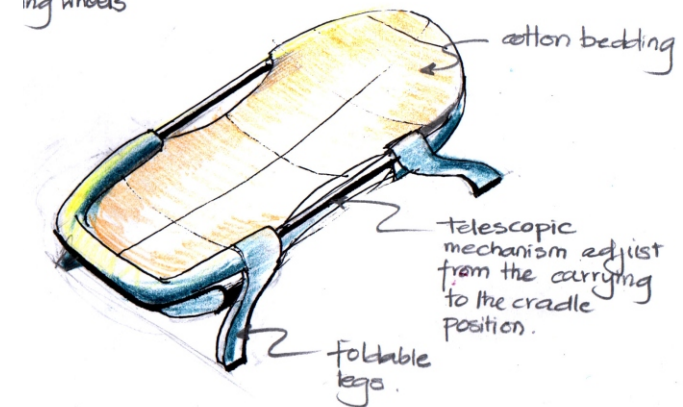 ing wheels
cotton bedding
telescopic
mechanism adjust
from the carrying
to the cradle
position.
foldable
legs.